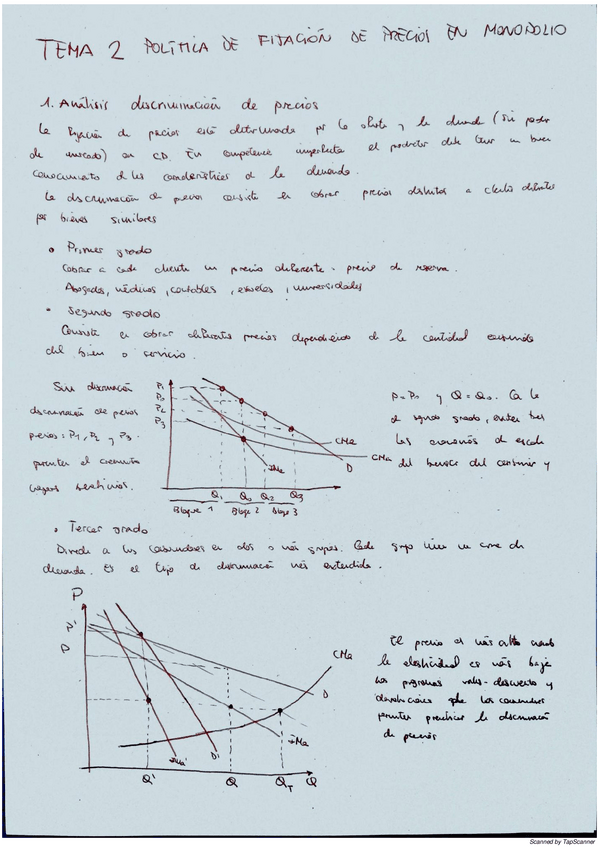 TEMA 2 POLÍTICA DE FIJACIÓN DE PRECIOS EN MONOPOLIO
1. Análisis discriminación de precios
La fijación de precios está determinada por la oferta y la demanda (sin poder
de mercado) en C.D. En competencia imperfecta el productor debe tener un buen
conocimiento de las características de la demanda.
La discriminación de precios consiste en cobrar precios distintos a clientes diferentes
por bienes similares
• Primer grado
Cobrar a cada cliente un precio diferente - precio de reserva.
Abogados, médicos, contables, escuelas, universidades
• Segundo grado
Consiste en cobrar diferentes precios dependiendo de la cantidad consumida
del bien o servicio.
Sin discriminación
discriminación de precios
precios: P1, P2 y P3.
permiten el
beneficios.
P1
P0
P2
P3
CMe
CMa
D
IMa
Q1 Q0 Q2 Q3
Bloque 1 Bloque 2 Bloque 3
P=P0 y Q=Q0. Con la
de segundo grado, existen tres
Las economías de escala
del bienestar del consumidor y
• Tercer grado
Divide a los consumidores en dos o más grupos. Cada grupo tiene una curva de
demanda. Es el tipo de discriminación más extendida.
P
P'
P
CMa
D
IMa
IMa'
D'
Q' Q QT Q
El precio es más alto cuando
la elasticidad es más baja
Los programas vales-descuento y
devoluciones sobre los consumidores
permiten practicar la discriminación
de precios
Scanned by TapScanner